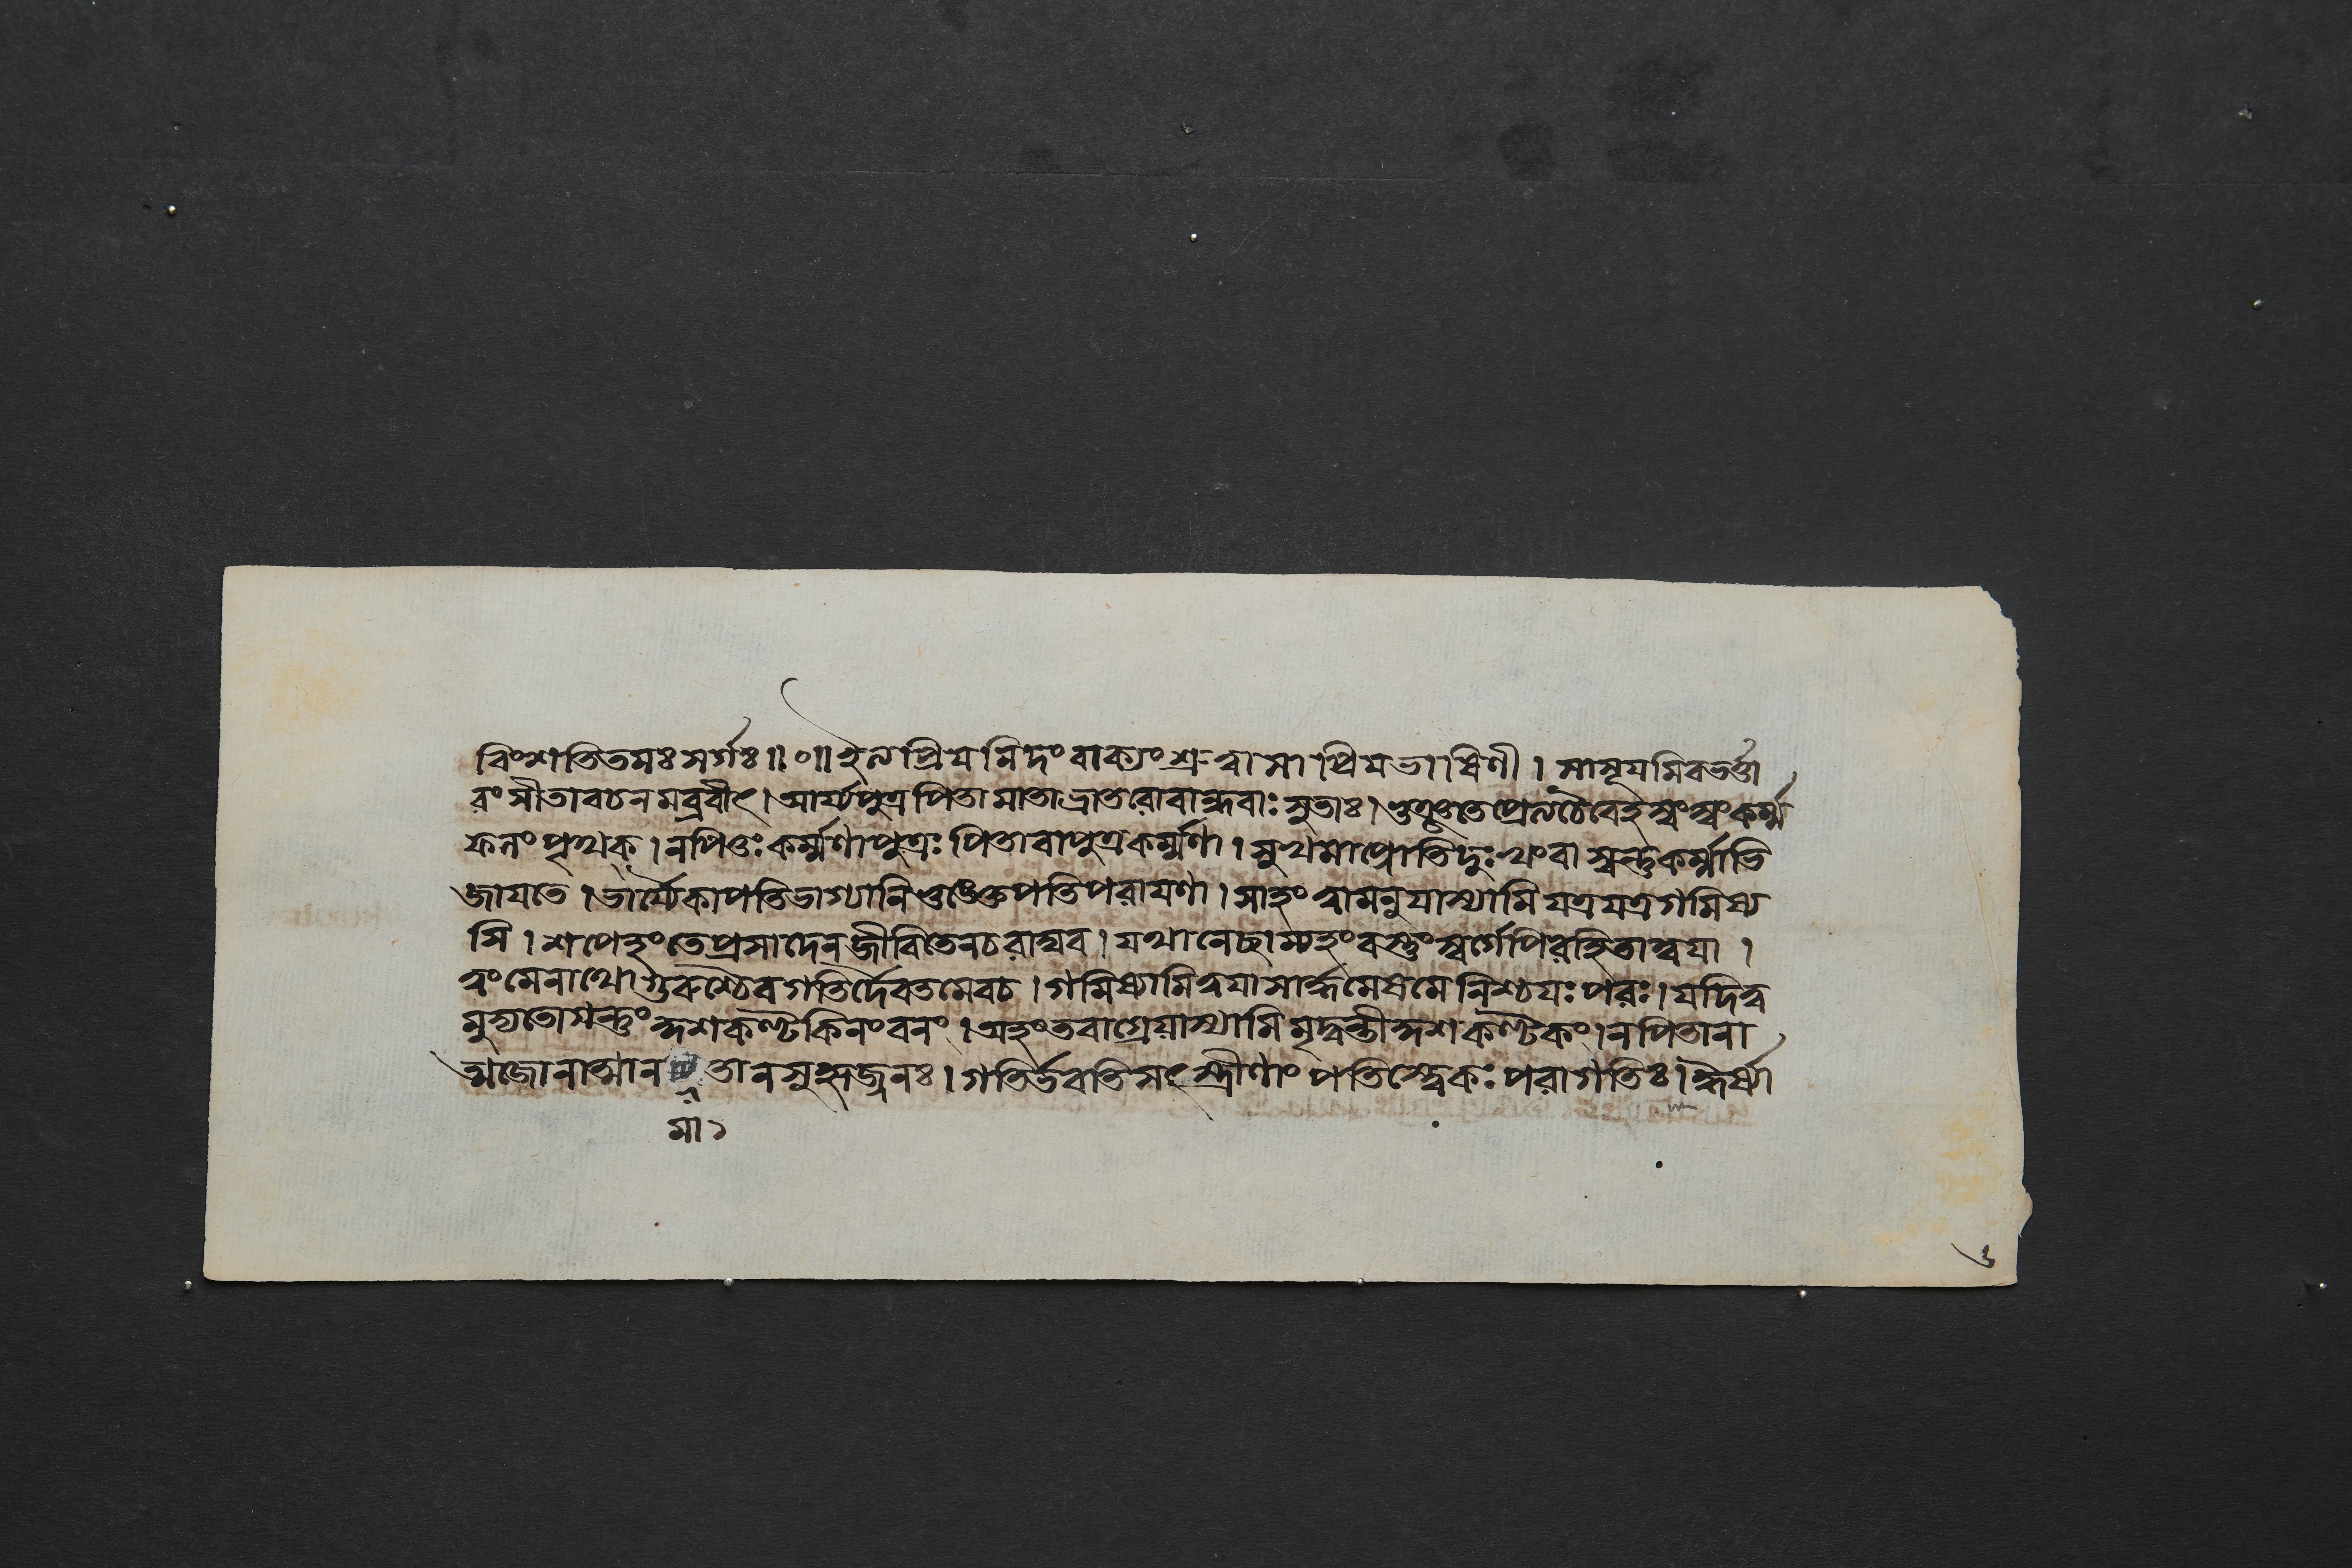 বিংশতিতমঃ সর্গঃ॥০॥ইত্যপ্রিয়মিদং বাক্যং শ্রুত্বা সা প্রিয়ভাষিণী । সাসূয়মিবভর্ত্তা
রং সীতাবচনমব্রবীৎ । আর্য্যপুত্র পিতা মাতা ভ্রাতরোবান্ধবাঃ সুতাঃ । ভুঞ্জতে প্রেত্যচৈবেহস্বংস্বং কর্ম্ম
ফলং পৃথক্ । নপিতুঃ কর্ম্মণাপুত্রঃ পিতাবাপুত্রকর্ম্মণা । সুখমাপ্নোতিদুঃখং বা স্বন্তুকর্ম্মাভি
জায়তে । ভার্য্যৈকাপতিভাগ্যানিভুঙ্ক্তেপতিপরায়ণা । সাহং ত্বামনুযাস্যামি যত্রযত্রগমিষ্য
সি । শপেহংতেপ্রসাদেনজীবিতেনচরাঘব । যথানেচ্ছাম্যহংবস্তুংস্বর্গেপিরহিতাত্বয়া ।
ত্বংমেনাথোগুরুশ্চৈবগতির্দৈবতমেবচ । গমিষ্যামিত্বয়াসার্দ্ধমেষমে নিশ্চয়ঃ পরঃ । যদিত্ব
মুদ্যতোগন্তুংদ্গশকণ্টকিনংবনং । অহংতবাগ্রেয়াস্যামি মৃদ্বন্তীদ্গশকণ্টকং । নপিতানা
ত্মজোনাত্মান তানসুহৃজ্জনঃ । গতির্ভবতিসৎস্ত্রীণাং পতিস্ত্বেকঃ পরাগতিঃ । ঈর্ষ্যা
মা১